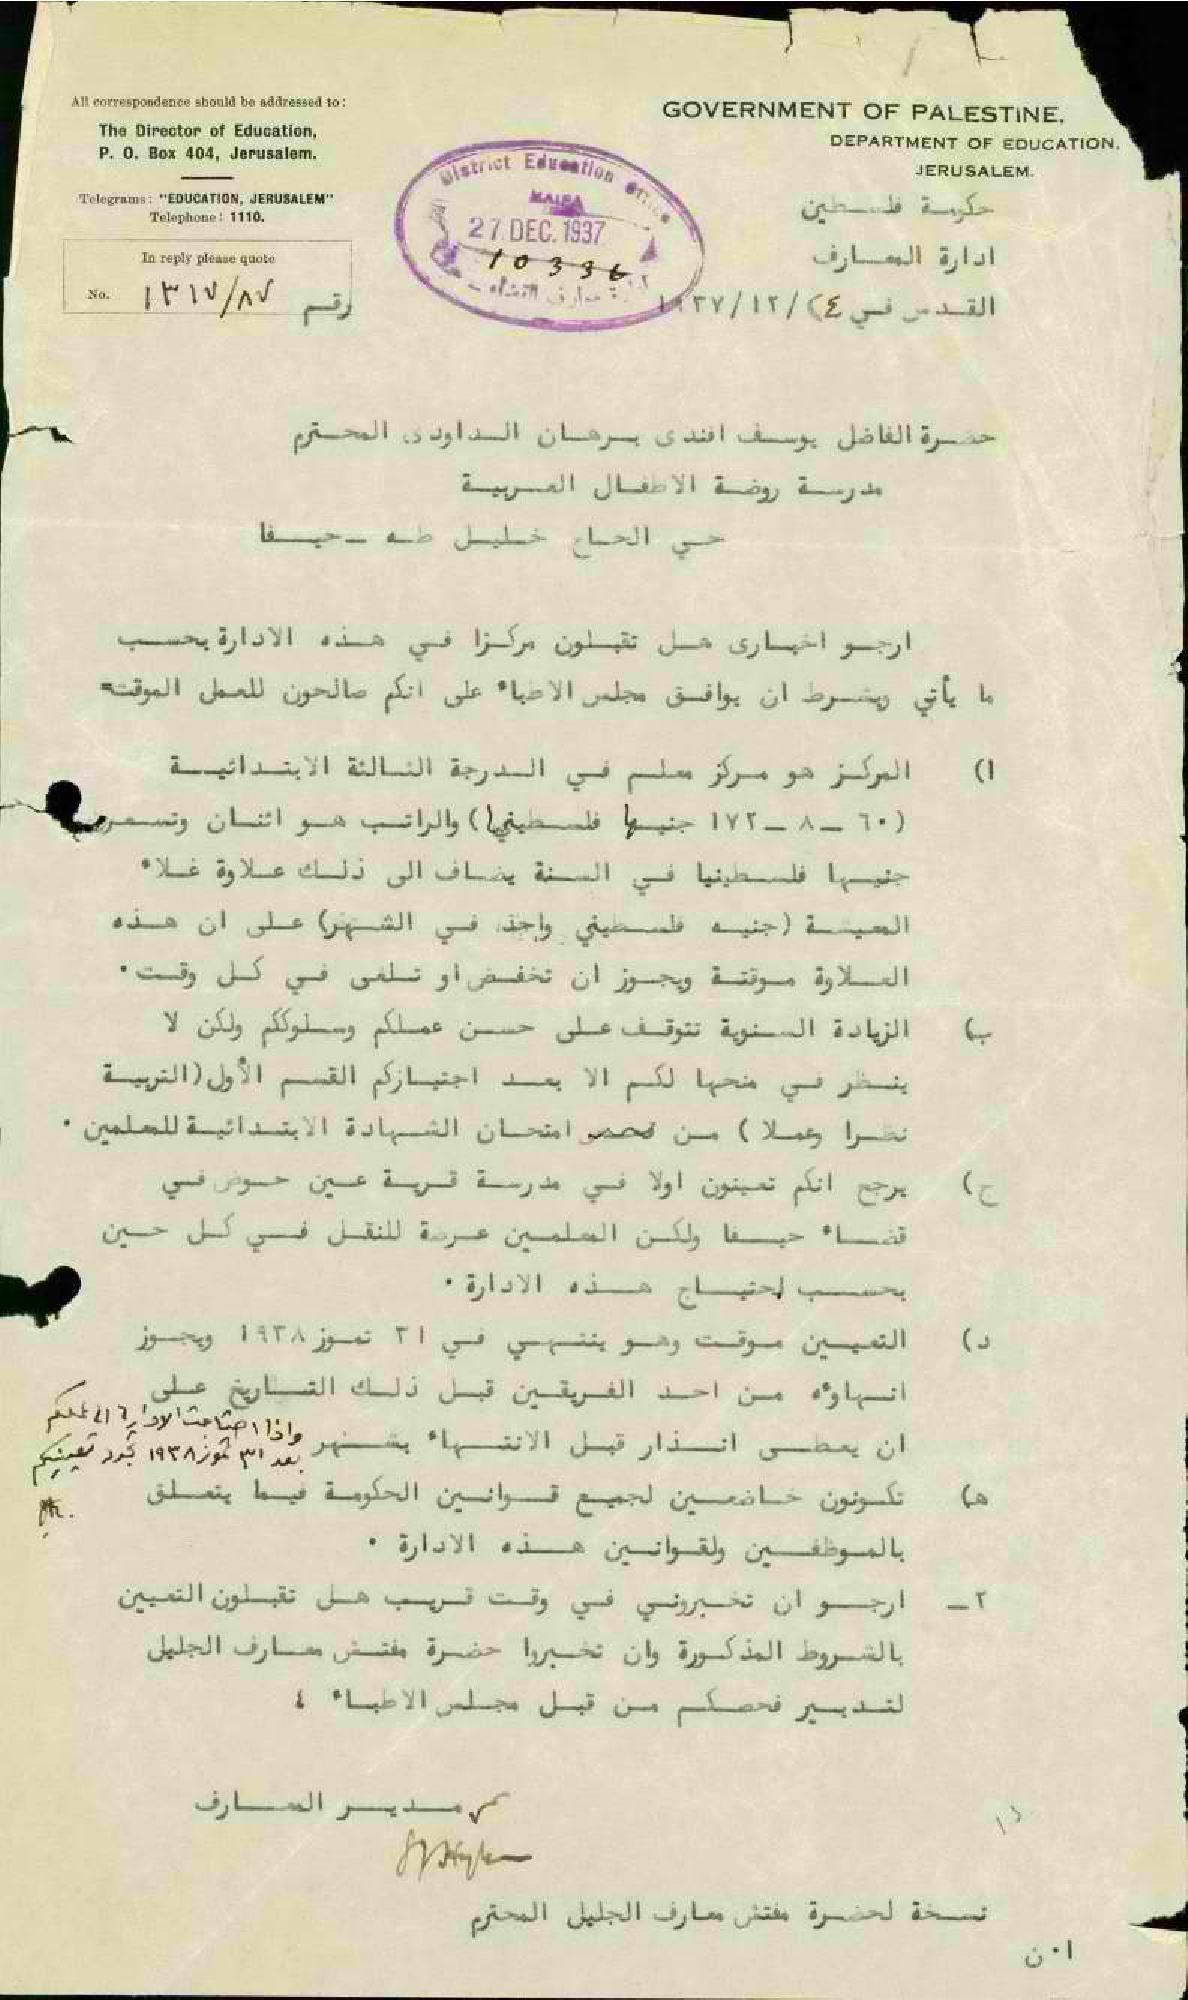 All correspondence should be addressed to:
The Director of Education,
P. O. Box 404, Jerusalem.
Telegrams: "EDUCATION, JERUSALEM"
Telephone: 1110.
In reply please quote
No. ١٣١٧/٨٧ رقم
GOVERNMENT OF PALESTINE,
DEPARTMENT OF EDUCATION,
JERUSALEM.
District Education Office
HAIFA
27 DEC. 1937
10336
حكومة فلسطين
ادارة المعارف
القدس في ٢٤/١٢/١٩٣٧
حضرة الفاضل يوسف افندى برهان الداودى المحترم
مدرسة روضة الاطفال العربية
حي الحاج خليل طه - حيفا
ارجو اخبارى هل تقبلون مركزا في هذه الادارة بحسب
ما يأتي وبشرط ان يوافق مجلس الاطباء على انكم صالحون للعمل الموقت
ا) المركز هو مركز معلم في الدرجة الثالثة الابتدائية
(٦٠ - ٨ - ١٧٢ جنيها فلسطينيا) والراتب هو اثنان وتسعون
جنيها فلسطينيا في السنة يضاف الى ذلك علاوة غلاء
المعيشة (جنيه فلسطيني واحد في الشهر) على ان هذه
العلاوة موقتة ويجوز ان تخفض او تلغى في كل وقت .
ب) الزيادة السنوية تتوقف على حسن عملكم وسلوككم ولكن لا
ينظر في منحها لكم الا بعد اجتيازكم القسم الأول (التربية
نظرا وعملا) من امتحان الشهادة الابتدائية للمعلمين .
ج) يرجح انكم تعينون اولا في مدرسة قرية عين حوض في
قضاء حيفا ولكن المعلمين عرضة للنقل في كل حين
بحسب احتياج هذه الادارة .
د) التعيين موقت وهو ينتهي في ٣١ تموز ١٩٣٨ ويجوز
انهاوءه من احد الفريقين قبل ذلك التاريخ على
ان يعطى انذار قبل الانتهاء بشهر
واذا احتاجت الادارة الى عملكم
بعد ٣١ تموز ١٩٣٨ تجدد تعيينكم
ه) تكونون خاضعين لجميع قوانين الحكومة فيما يتعلق
بالموظفين ولقوانين هذه الادارة .
٢ - ارجو ان تخبروني في وقت قريب هل تقبلون التعيين
بالشروط المذكورة وان تخبروا حضرة مفتش معارف الجليل
لتدبير فحصكم من قبل مجلس الاطباء ؛
مدير المعارف
نسخة لحضرة مفتش معارف الجليل المحترم
ا . ن